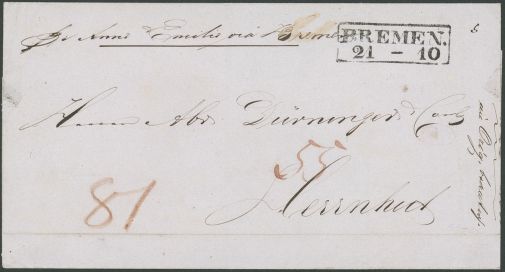 Pr Anna Emilie via Bremen
BREMEN.
21 - 10
Herrn Abr. Dürninger & Co
55
81
Herrnhut